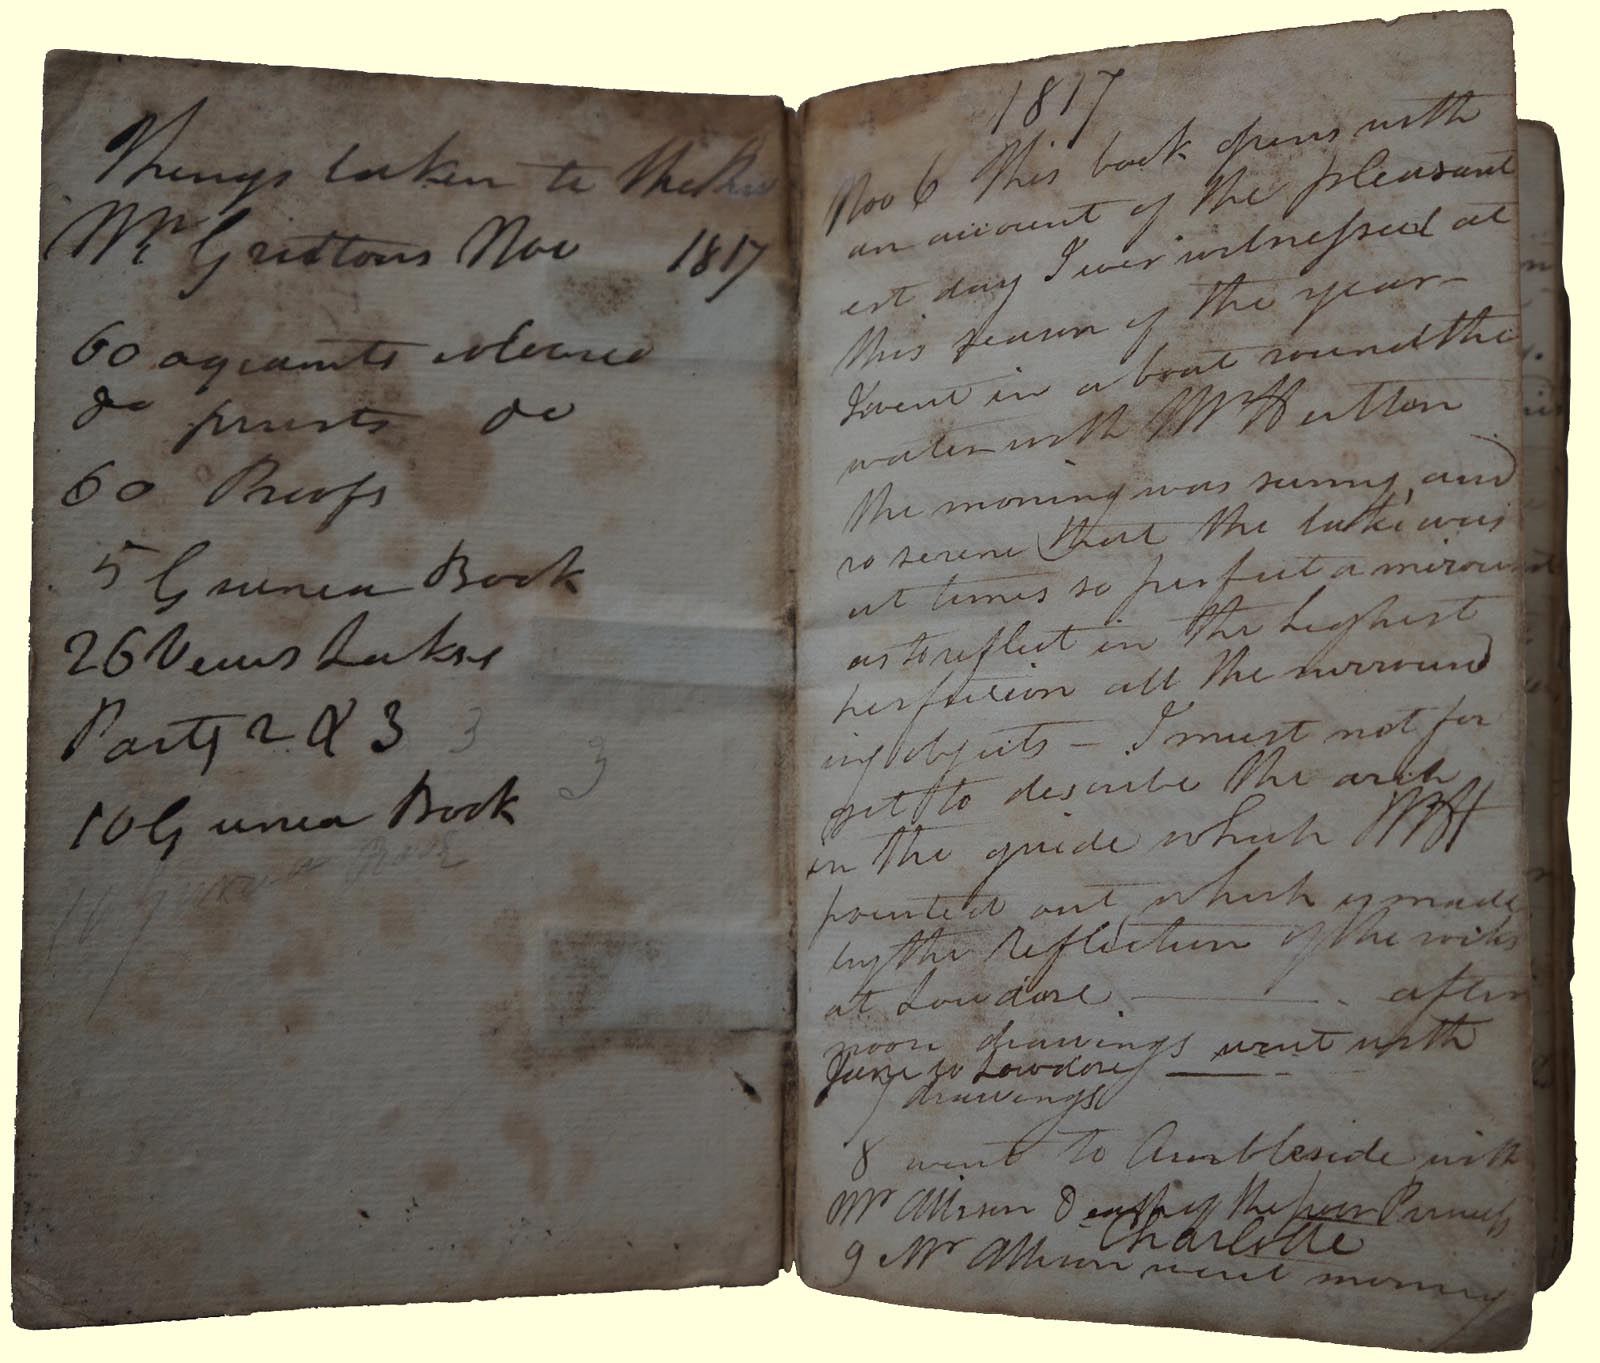 Things taken to the
Mr Grettons Nov 1817
60 aquaints coloured
do prints do
60 Proofs
5 Guinea Book
26 Views Lakes
Parts 2 & 3 3
3
10 Guinea Book
10 guinea Book
1817
Nov 6 This book opens with
an account of the pleasant
est day I ever witnessed at
this season of the year-
I went in a boat round the
water with Mr Hutton
the morning was sunny, and
so serene that the lake was
at times so perfect a mirour
as to reflect in the highest
perfection all the surround
ing objects - I must not for
get to describe the arch
in the guide which Mr H
pointed out which is made
by the Reflection of the rocks
at Lowdore after
noon drawings went with
Jane to Lowdore
7 drawings
8 went to Ambleside with
Mr Allison Death of the poor Princess
Charlotte
9 Mr Allison went morning